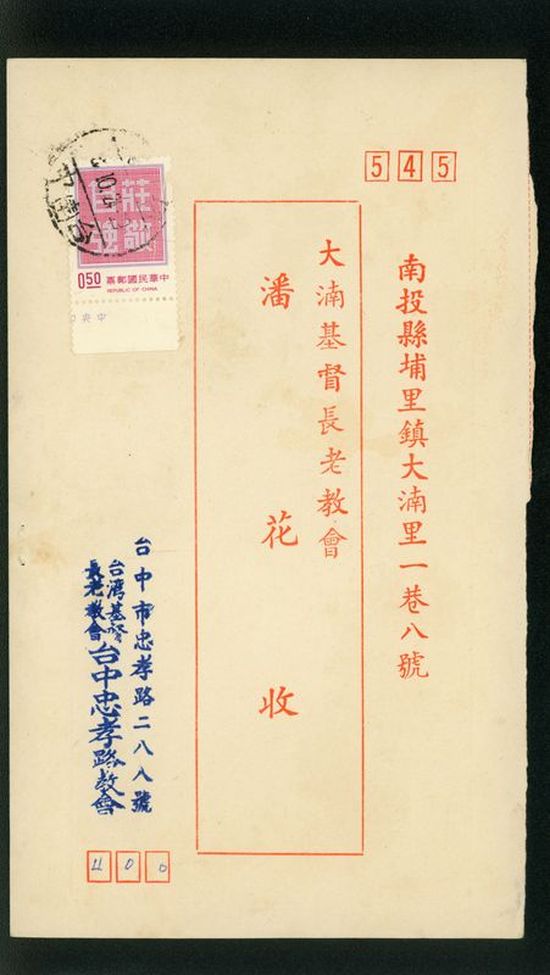 545
南投縣埔里鎮大湳里一巷八號
大湳基督長老教會
潘花收
莊敬自強
0.50 票郵國民華中
REPUBLIC OF CHINA
中央
台中市忠孝路二八八號
台灣基督
長老教會
台中忠孝路教會
400